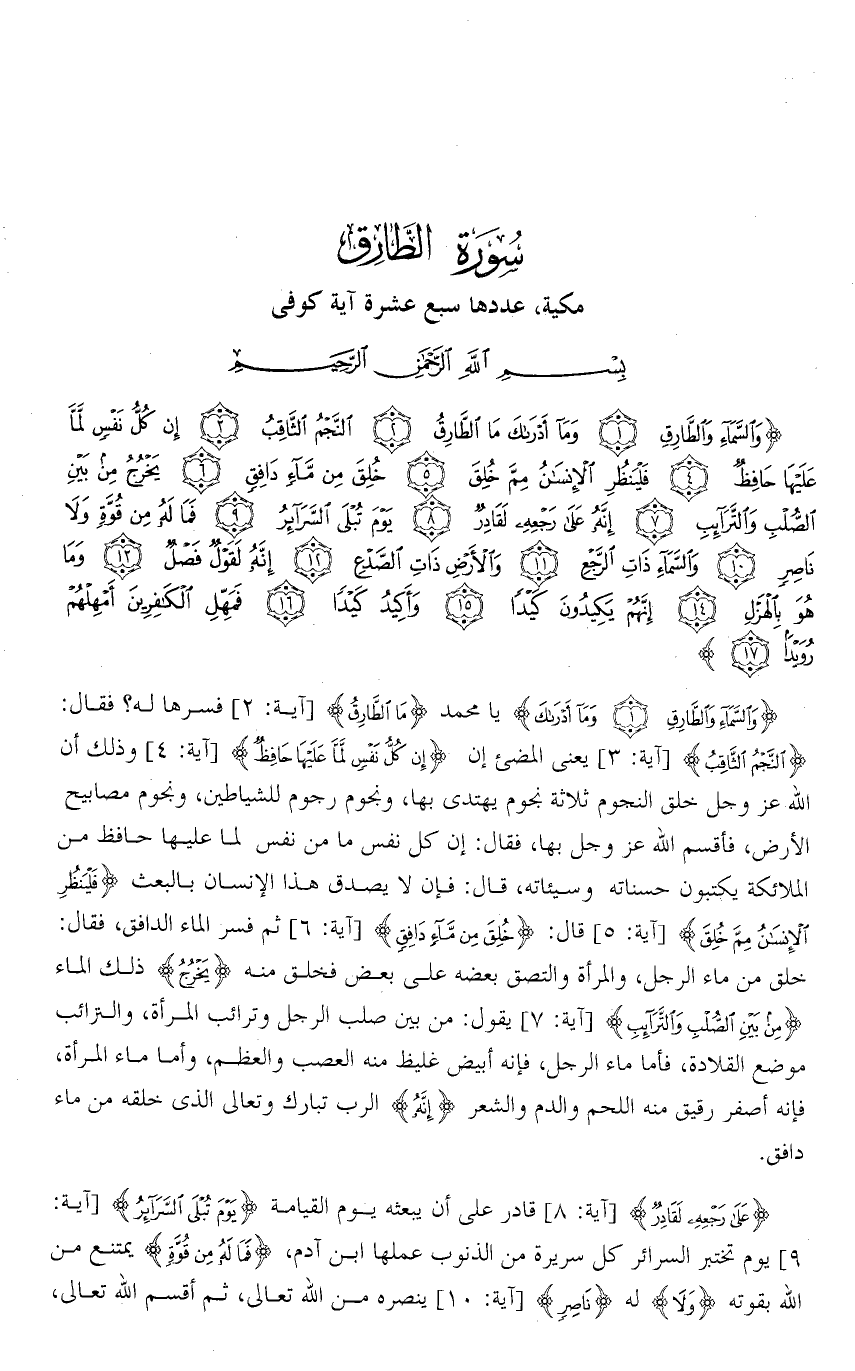 سُورَةُ الطَّارِقِ
مكية، عددها سبع عشرة آية كوفى
بِسْمِ اللَّهِ الرَّحْمَٰنِ الرَّحِيمِ
﴿وَالسَّمَاءِ وَالطَّارِقِ ١ وَمَا أَدْرَاكَ مَا الطَّارِقُ ٢ النَّجْمُ الثَّاقِبُ ٣ إِن كُلُّ نَفْسٍ لَّمَّا
عَلَيْهَا حَافِظٌ ٤ فَلْيَنظُرِ الْإِنسَانُ مِمَّ خُلِقَ ٥ خُلِقَ مِن مَّاءٍ دَافِقٍ ٦ يَخْرُجُ مِنْ بَيْنِ
الصُّلْبِ وَالتَّرَائِبِ ٧ إِنَّهُ عَلَىٰ رَجْعِهِ لَقَادِرٌ ٨ يَوْمَ تُبْلَى السَّرَائِرُ ٩ فَمَا لَهُ مِن قُوَّةٍ وَلَا
نَاصِرٍ ١٠ وَالسَّمَاءِ ذَاتِ الرَّجْعِ ١١ وَالْأَرْضِ ذَاتِ الصَّدْعِ ١٢ إِنَّهُ لَقَوْلٌ فَصْلٌ ١٣ وَمَا
هُوَ بِالْهَزْلِ ١٤ إِنَّهُمْ يَكِيدُونَ كَيْدًا ١٥ وَأَكِيدُ كَيْدًا ١٦ فَمَهِّلِ الْكَافِرِينَ أَمْهِلْهُمْ
رُوَيْدًا ١٧ ﴾
﴿وَالسَّمَاءِ وَالطَّارِقِ ١ وَمَا أَدْرَاكَ﴾ يا محمد ﴿مَا الطَّارِقُ﴾ [آية: ٢] فسرها له؟ فقال:
﴿النَّجْمُ الثَّاقِبُ﴾ [آية: ٣] يعنى المضئ إن ﴿إِن كُلُّ نَفْسٍ لَّمَّا عَلَيْهَا حَافِظٌ﴾ [آية: ٤] وذلك أن
الله عز وجل خلق النجوم ثلاثة نجوم يهتدى بها، ونجوم رجوم للشياطين، ونجوم مصابيح
الأرض، فأقسم الله عز وجل بها، فقال: إن كل نفس ما من نفس لما عليها حافظ من
الملائكة يكتبون حسناته وسيئاته، قال: فإن لا يصدق هذا الإنسان بالبعث ﴿فَلْيَنظُرِ
الْإِنسَانُ مِمَّ خُلِقَ﴾ [آية: ٥] قال: ﴿خُلِقَ مِن مَّاءٍ دَافِقٍ﴾ [آية: ٦] ثم فسر الماء الدافق، فقال:
خلق من ماء الرجل، والمرأة والتصق بعضه على بعض فخلق منه ﴿يَخْرُجُ﴾ ذلك الماء
﴿مِنْ بَيْنِ الصُّلْبِ وَالتَّرَائِبِ﴾ [آية: ٧] يقول: من بين صلب الرجل وترائب المرأة، والترائب
موضع القلادة، فأما ماء الرجل، فإنه أبيض غليظ منه العصب والعظم، وأما ماء المرأة،
فإنه أصفر رقيق منه اللحم والدم والشعر ﴿إِنَّهُ﴾ الرب تبارك وتعالى الذى خلقه من ماء
دافق.
﴿عَلَىٰ رَجْعِهِ لَقَادِرٌ﴾ [آية: ٨] قادر على أن يبعثه يوم القيامة ﴿يَوْمَ تُبْلَى السَّرَائِرُ﴾ [آية:
٩] يوم تختبر السرائر كل سريرة من الذنوب عملها ابن آدم، ﴿فَمَا لَهُ مِن قُوَّةٍ﴾ يمتنع من
الله بقوته ﴿وَلَا﴾ له ﴿نَاصِرٍ﴾ [آية: ١٠] ينصره من الله تعالى، ثم أقسم الله تعالى،